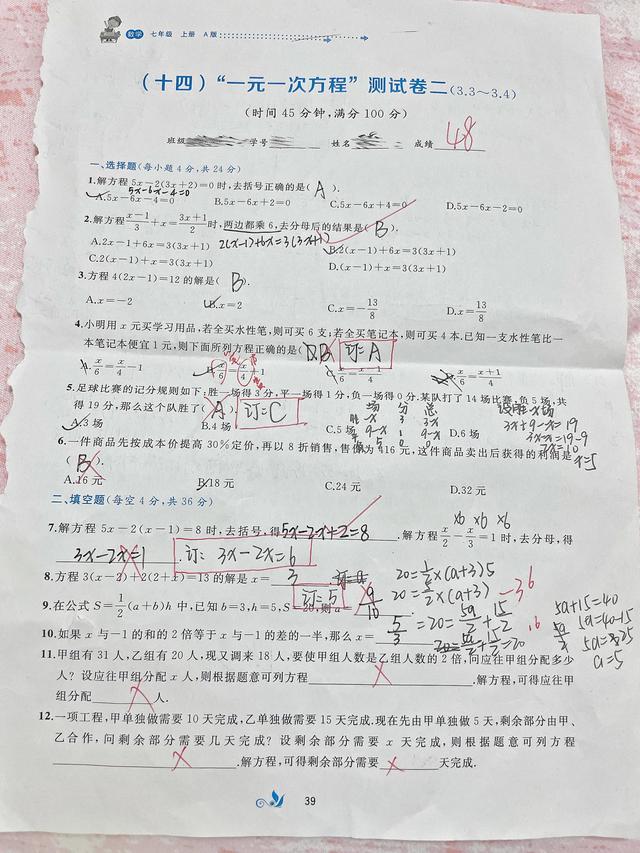 数学 七年级 上册 A版
(十四)“一元一次方程”测试卷二(3.3~3.4)
(时间45分钟,满分100分)
班级 学号 姓名 成绩 48
一、选择题(每小题4分,共24分)
1.解方程5x-2(3x+2)=0时,去括号正确的是( A ).
5x-6x-4=0
A.5x-6x-4=0 B.5x-6x+2=0 C.5x-6x+4=0 D.5x-6x-2=0
2.解方程(x-1)/3+x=(3x+1)/2时,两边都乘6,去分母后的结果是( B ).
A.2x-1+6x=3(3x+1) 2(x-1)+6x=3(3x+1) B.2(x-1)+6x=3(3x+1)
C.2(x-1)+x=3(3x+1) D.(x-1)+x=3(3x+1)
3.方程4(2x-1)=12的解是( B ).
A.x=-2 B.x=2 C.x=-13/8 D.x=13/8
4.小明用x元买学习用品,若全买水性笔,则可买6支;若全买笔记本,则可买4本.已知一支水性笔比一
本笔记本便宜1元,则下面所列方程正确的是( B 订=A
A.x/6=x/4-1 B.x/6=x/4+1 x/6= x/6=(x+1)/4
5.足球比赛的记分规则如下:胜一场得3分,平一场得1分,负一场得0分.某队打了14场比赛,负5场,共
得19分,那么这个队胜了( A ) 订=C
场 分 总
胜 x 3 3x
9-x 1 9-x
5 0
3x+9-x=19
3x-x=19-9
x=5
A.3场 B.4场 C.5场 D.6场
6.一件商品先按成本价提高30%定价,再以8折销售,售价为416元,这件商品卖出后获得的利润是
( B ).
A.16元 B.18元 C.24元 D.32元
二、填空题(每空4分,共36分)
7.解方程5x-2(x-1)=8时,去括号,得5x-2x+2=8.解方程x/2-x/3=1时,去分母,得
×6 ×6 ×6
3x-2x=1 . 订: 3x-2x=6
8.方程3(x-2)+2(2+x)=13的解是x= 3
订=5
9.在公式S=1/2(a+b)h中,已知b=3,h=5,S=20,则a= 9/10
20=1/2×(a+3)5
20=1/2×(a+3)
-36
=20=5a/2+15/2
5a+15=40
5a=40-15
5a=25
a=5
10.如果x与-1的和的2倍等于x与-1的差的一半,那么x= 5/3
11.甲组有31人,乙组有20人,现又调来18人,要使甲组人数是乙组人数的2倍,问应往甲组分配多少
人?设应往甲组分配x人,则根据题意可列方程 .解方程,可得应往甲
组分配 人.
12.一项工程,甲单独做需要10天完成,乙单独做需要15天完成.现在先由甲单独做5天,剩余部分由甲、
乙合作,问剩余部分需要几天完成?设剩余部分需要x天完成,则根据题意可列方程
.解方程,可得剩余部分需要 天完成.
39